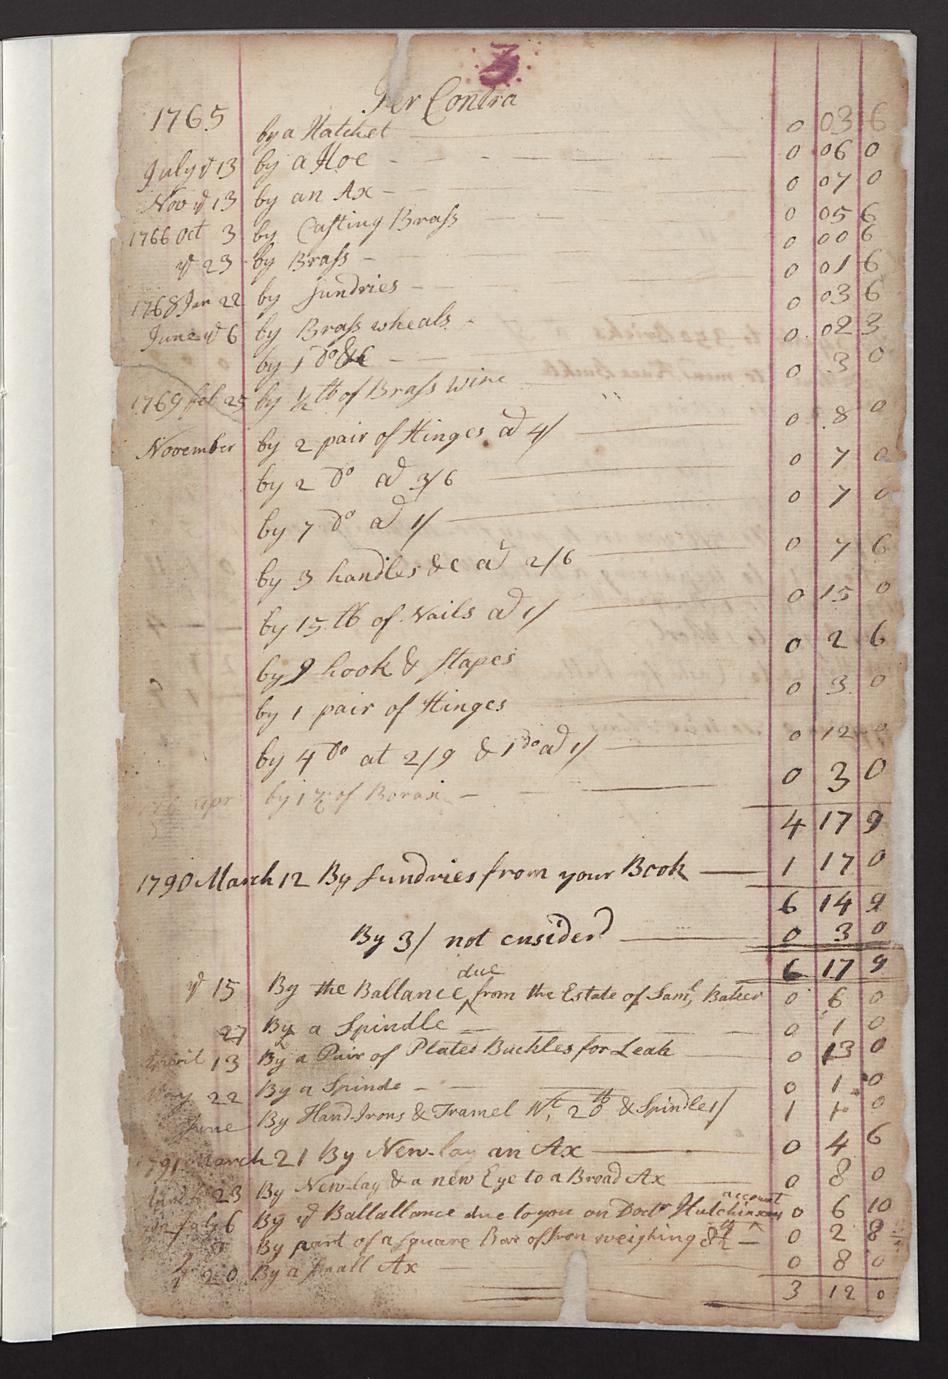 3
Per Contra
1765 by a Hatchet 0 03 6
July ye 13 by a Hoe 0 06 0
Nov ye 13 by an Ax 0 07 0
1766 Oct 3 by Casting Brass 0 05 6
ye 23 by Brass 0 00 6
1768 Jan 22 by Sundries 0 01 6
June ye 6 by Brass wheals 0 03 6
by 1 Do &c 0 02 3
1769 feb 25 by ½ lb of Brass Wire 0 3 0
November by 2 pair of Hinges ad 4/ 0 8 0
by 2 Do ad 3/6 0 7 0
by 7 Do ad 1/ 0 7 0
by 3 handles &c ad 2/6 0 7 6
by 15 lb of Nails ad 1/ 0 15 0
by 9 hook & stapes 0 2 6
by 1 pair of Hinges 0 3 0
by 4 Do at 2/9 & 1 Do ad 1/ 0 12 0
apr by 1 of Borax 0 3 0
4 17 9
1790 March 12 By Sundries from your Book 1 17 0
6 14 9
By 3/ not cnsiderd 0 3 0
6 17 9
ye 15 By the Ballance due from the Estate of Saml Baker 0 6 0
27 By a Spindle 0 1 0
April 13 By a Pair of Plated Buckles for Leah 0 13 0
May 22 By a Spinde 0 1 0
June By Hand-Irons & Tramel Wt 28 lb & Spindle 1/ 1 1 0
1791 March 21 By New-lay an Ax 0 4 6
23 By New lay & a new Eye to a Broad Ax 0 8 0
July 6 By ye Ballallance due to you on Doctr Hutchinsons account 0 6 10
By part of a square Bar of Iron weighing 0 2 8
ye 20 By a small Ax 0 8 0
3 12 0